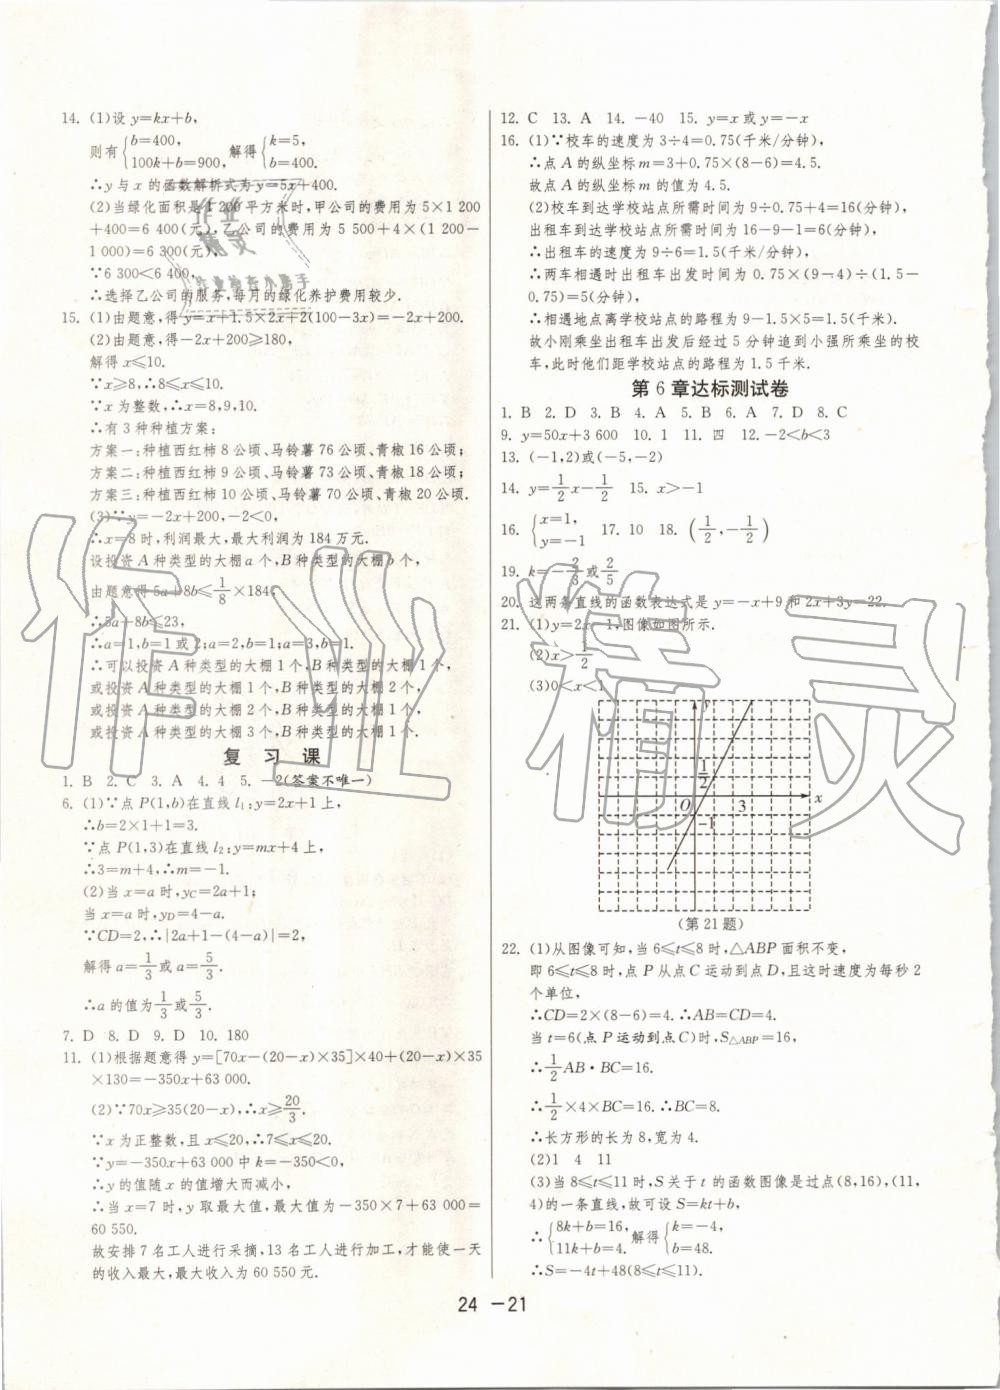 14. (1)设 y=kx+b,
则有{b=400, 100k+b=900, 解得{k=5, b=400.
∴y 与 x 的函数解析式为 y=5x+400.
(2)当绿化面积是 1 200 平方米时,甲公司的费用为 5×1 200
+400=6 400(元),乙公司的费用为 5 500+4×(1 200-
1 000)=6 300(元),
∵6 300<6 400,
∴选择乙公司的服务,每月的绿化养护费用较少.
15. (1)由题意,得 y=x+1.5×2x+2(100-3x)=-2x+200.
(2)由题意,得-2x+200≥180,
解得 x≤10.
∵x≥8,∴8≤x≤10.
∵x 为整数,∴x=8,9,10.
∴有 3 种种植方案:
方案一:种植西红柿 8 公顷、马铃薯 76 公顷、青椒 16 公顷;
方案二:种植西红柿 9 公顷、马铃薯 73 公顷、青椒 18 公顷;
方案三:种植西红柿 10 公顷、马铃薯 70 公顷、青椒 20 公顷.
(3)∵y=-2x+200,-2<0,
∴x=8 时,利润最大,最大利润为 184 万元.
设投资 A 种类型的大棚 a 个,B 种类型的大棚 b 个,
由题意得 5a+8b≤1/8×184,
∴5a+8b≤23,
∴a=1,b=1 或 2;a=2,b=1;a=3,b=1.
∴可以投资 A 种类型的大棚 1 个,B 种类型的大棚 1 个,
或投资 A 种类型的大棚 1 个,B 种类型的大棚 2 个,
或投资 A 种类型的大棚 2 个,B 种类型的大棚 1 个,
或投资 A 种类型的大棚 3 个,B 种类型的大棚 1 个.
复 习 课
1. B 2. C 3. A 4. 4 5. -2(答案不唯一)
6. (1)∵点 P(1,b)在直线 l₁:y=2x+1 上,
∴b=2×1+1=3.
∵点 P(1,3)在直线 l₂:y=mx+4 上,
∴3=m+4,∴m=-1.
(2)当 x=a 时,y_C=2a+1;
当 x=a 时,y_D=4-a.
∵CD=2,∴|2a+1-(4-a)|=2,
解得 a=1/3或 a=5/3.
∴a 的值为1/3或5/3.
7. D 8. D 9. D 10. 180
11. (1)根据题意得 y=[70x-(20-x)×35]×40+(20-x)×35
×130=-350x+63 000.
(2)∵70x≥35(20-x),∴x≥20/3.
∵x 为正整数,且 x≤20,∴7≤x≤20.
∵y=-350x+63 000 中 k=-350<0,
∴y 的值随 x 的值增大而减小,
∴当 x=7 时,y 取最大值,最大值为-350×7+63 000=
60 550.
故安排 7 名工人进行采摘,13 名工人进行加工,才能使一天
的收入最大,最大收入为 60 550 元.
12. C 13. A 14. -40 15. y=x 或 y=-x
16. (1)∵校车的速度为 3÷4=0.75(千米/分钟),
∴点 A 的纵坐标 m=3+0.75×(8-6)=4.5.
故点 A 的纵坐标 m 的值为 4.5.
(2)校车到达学校站点所需时间为 9÷0.75+4=16(分钟),
出租车到达学校站点所需时间为 16-9-1=6(分钟),
∴出租车的速度为 9÷6=1.5(千米/分钟),
∴两车相遇时出租车出发时间为 0.75×(9-4)÷(1.5-
0.75)=5(分钟),
∴相遇地点离学校站点的路程为 9-1.5×5=1.5(千米).
故小刚乘坐出租车出发后经过 5 分钟追到小强所乘坐的校
车,此时他们距学校站点的路程为 1.5 千米.
第 6 章达标测试卷
1. B 2. D 3. B 4. A 5. B 6. A 7. D 8. C
9. y=50x+3 600 10. 1 11. 四 12. -2<b<3
13. (-1,2)或(-5,-2)
14. y=1/2x-1/2 15. x>-1
16. {x=1, y=-1 17. 10 18. (1/2,-1/2)
19. k=-2/3或2/5
20. 这两条直线的函数表达式是 y=-x+9 和 2x+3y=22.
21. (1)y=2x-1,图像如图所示.
(2)x>1/2
(3)0<x<1
y
1/2
O 3 x
-1
(第 21 题)
22. (1)从图像可知,当 6≤t≤8 时,△ABP 面积不变,
即 6≤t≤8 时,点 P 从点 C 运动到点 D,且这时速度为每秒 2
个单位,
∴CD=2×(8-6)=4.∴AB=CD=4.
当 t=6(点 P 运动到点 C)时,S△ABP=16,
∴1/2AB·BC=16.
∴1/2×4×BC=16.∴BC=8.
∴长方形的长为 8,宽为 4.
(2)1 4 11
(3)当 8≤t≤11 时,S 关于 t 的函数图像是过点(8,16),(11,
4)的一条直线,故可设 S=kt+b,
∴{8k+b=16, 11k+b=4. 解得{k=-4, b=48.
∴S=-4t+48(8≤t≤11).
24 -21
作业精灵